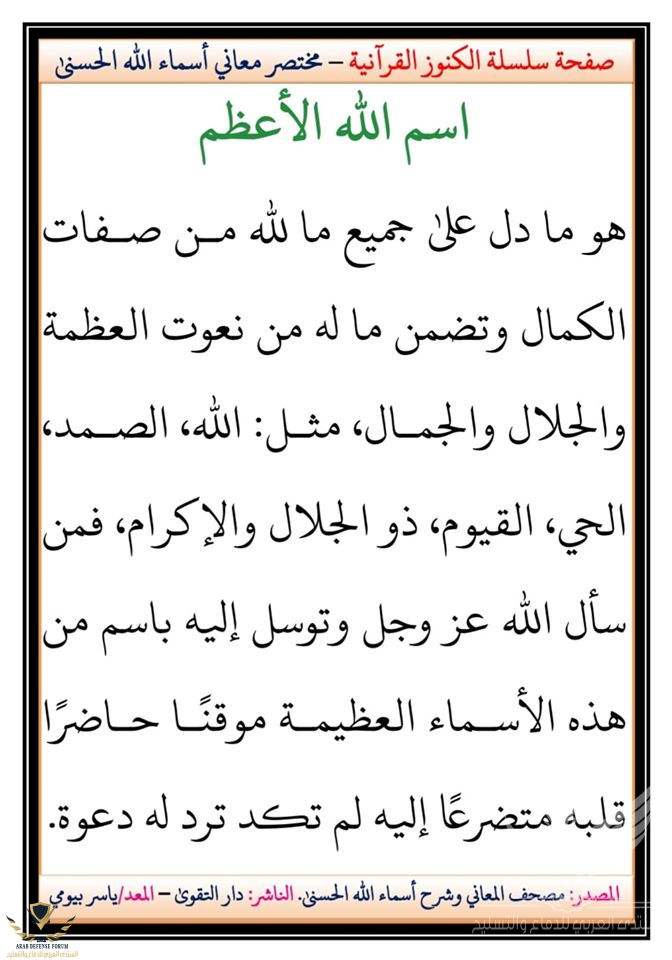 صفحة سلسلة الكنوز القرآنية – مختصر معاني أسماء الله الحسنى
اسم الله الأعظم
هو ما دل على جميع ما لله من صفات
الكمال وتضمن ما له من نعوت العظمة
والجلال والجمال، مثل: الله، الصمد،
الحي، القيوم، ذو الجلال والإكرام، فمن
سأل الله عز وجل وتوسل إليه باسم من
هذه الأسماء العظيمة موقنًا حاضرًا
قلبه متضرعًا إليه لم تكد ترد له دعوة.
المصدر: مصحف المعاني وشرح أسماء الله الحسنى. الناشر: دار التقوى – المعد/ياسر بيومي
منتدى العربي للدفاع والتسليح
ARAB DEFENSE FORUM
المنتدى العربي للدفاع والتسليح